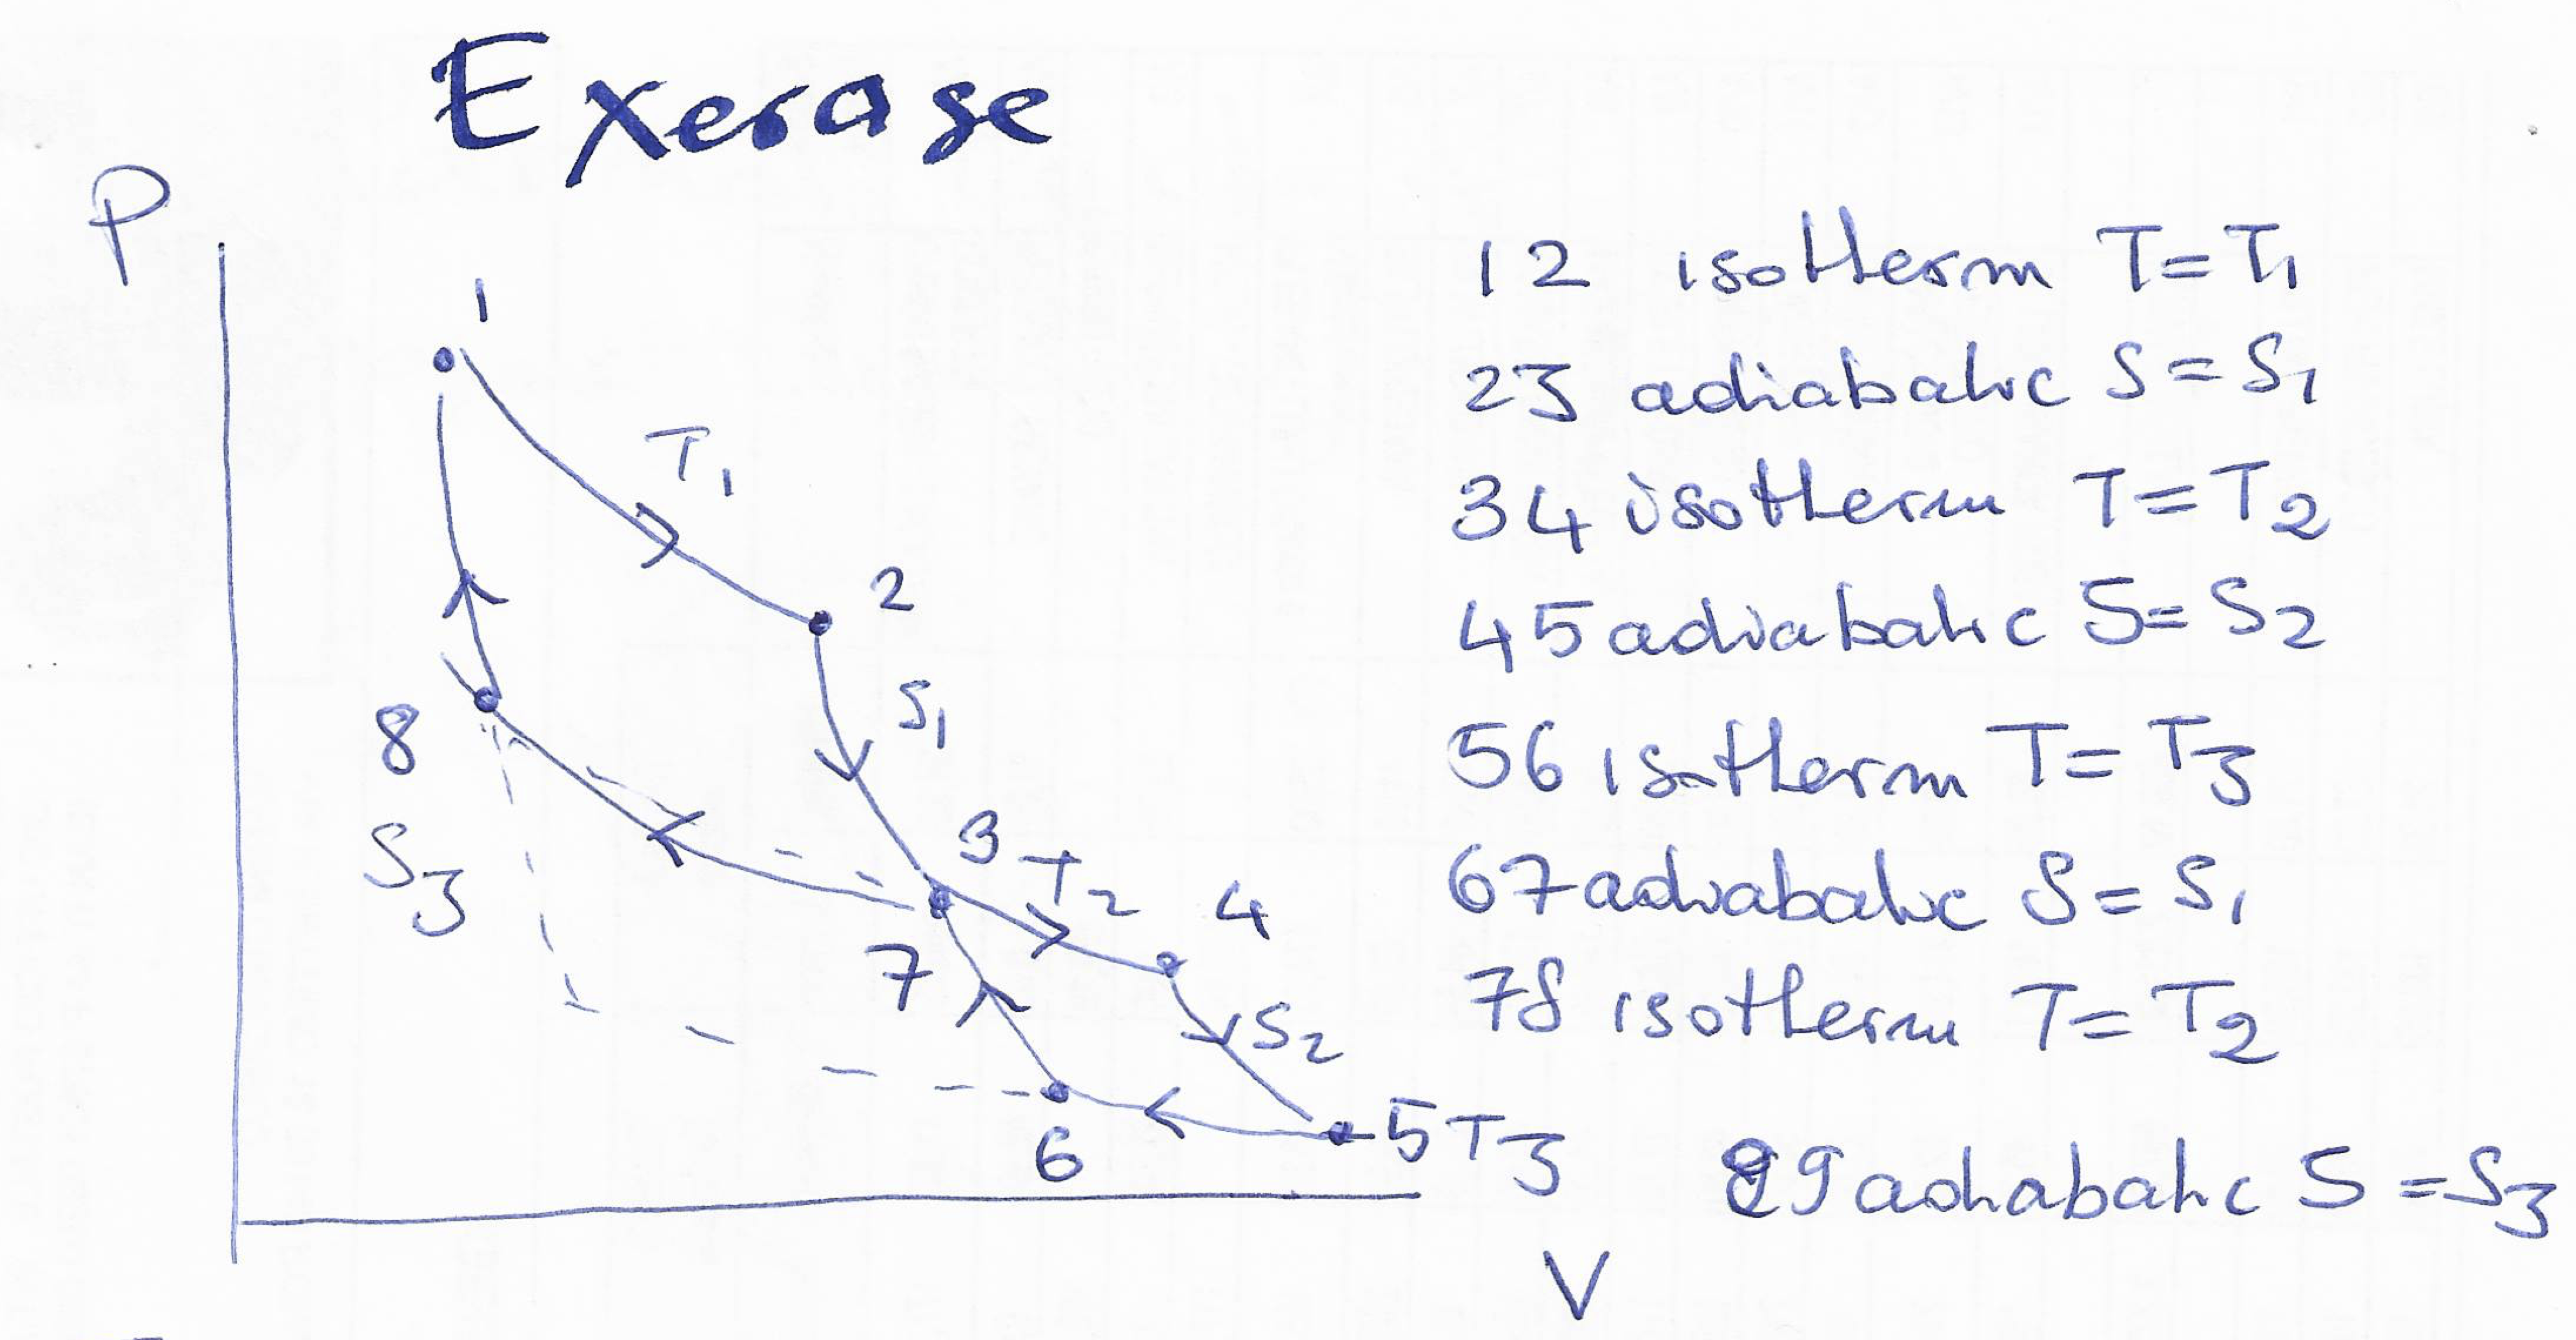 Exercise
P
1
T1
2
S1
8
S3
3
T2
4
7
S2
6
5 T3
V
12 isotherm T=T1
23 adiabatic S=S1
34 isotherm T=T2
45 adiabatic S=S2
56 isotherm T=T3
67 adiabatic S=S1
78 isotherm T=T2
89 adiabatic S=S3